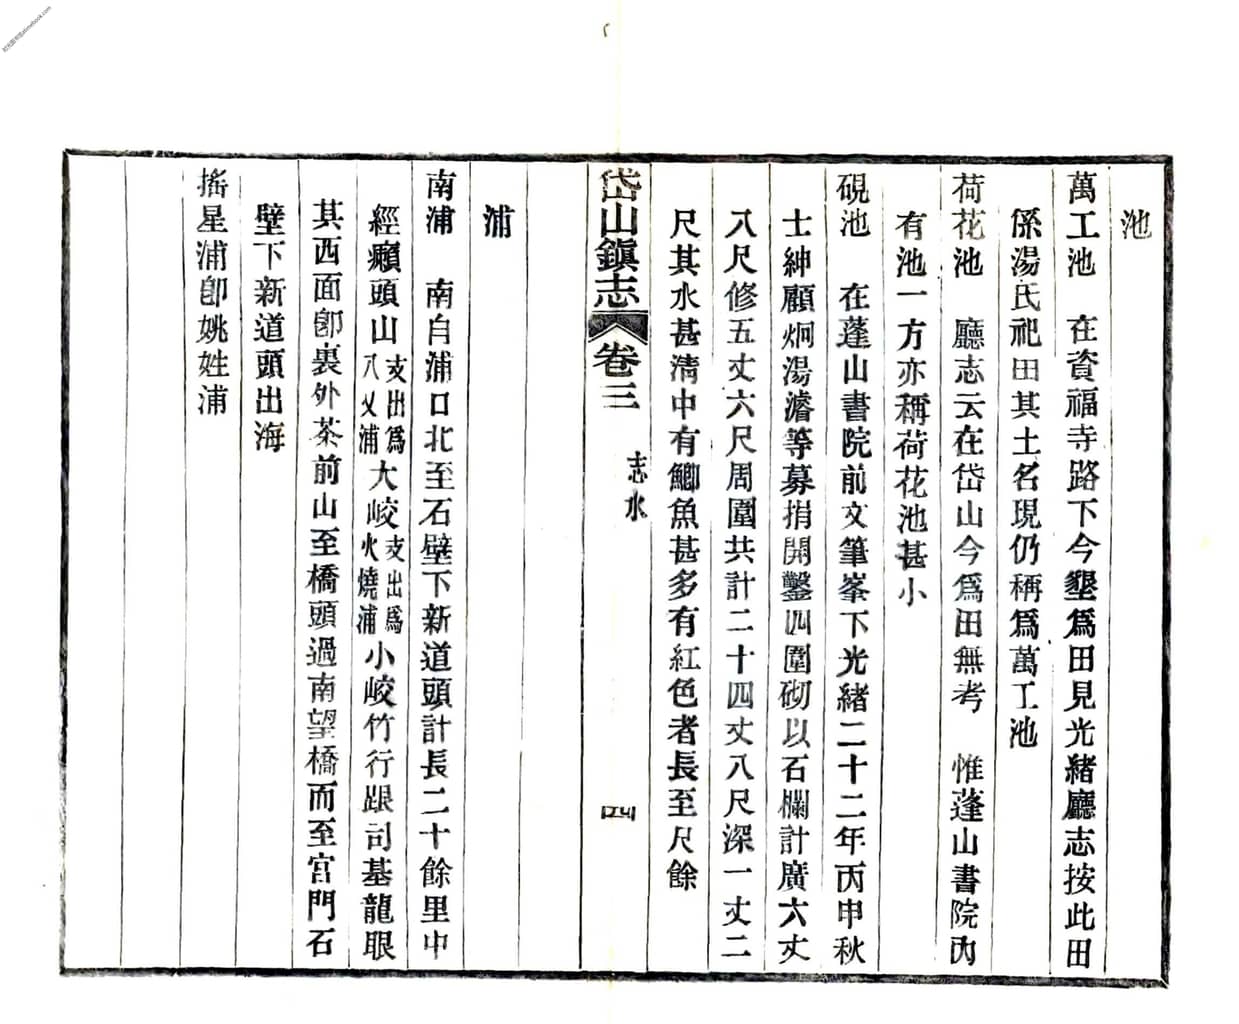 池
萬工池　在資福寺路下今墾爲田見光緒廳志按此田
係湯氏祀田其土名現仍稱爲萬工池
荷花池　廳志云在岱山今爲田無考　惟蓬山書院內
有池一方亦稱荷花池甚小
硯池　在蓬山書院前文筆峯下光緒二十二年丙申秋
士紳顧炯湯濬等募捐開鑿四圍砌以石欄計廣六丈
八尺修五丈六尺周圍共計二十四丈八尺深一丈二
尺其水甚淸中有鯽魚甚多有紅色者長至尺餘
岱山鎭志 卷三 志水 四
浦
南浦　南自浦口北至石壁下新道頭計長二十餘里中
經癩頭山支出爲八乂浦大峧支出爲火燒浦小峧竹行跟司基龍眼
其西面卽裏外茶前山至橋頭過南望橋而至宮門石
壁下新道頭出海
搖星浦卽姚姓浦